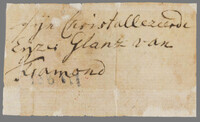 fijn Christallezeerde
Eyzer Glanz van
Diamond